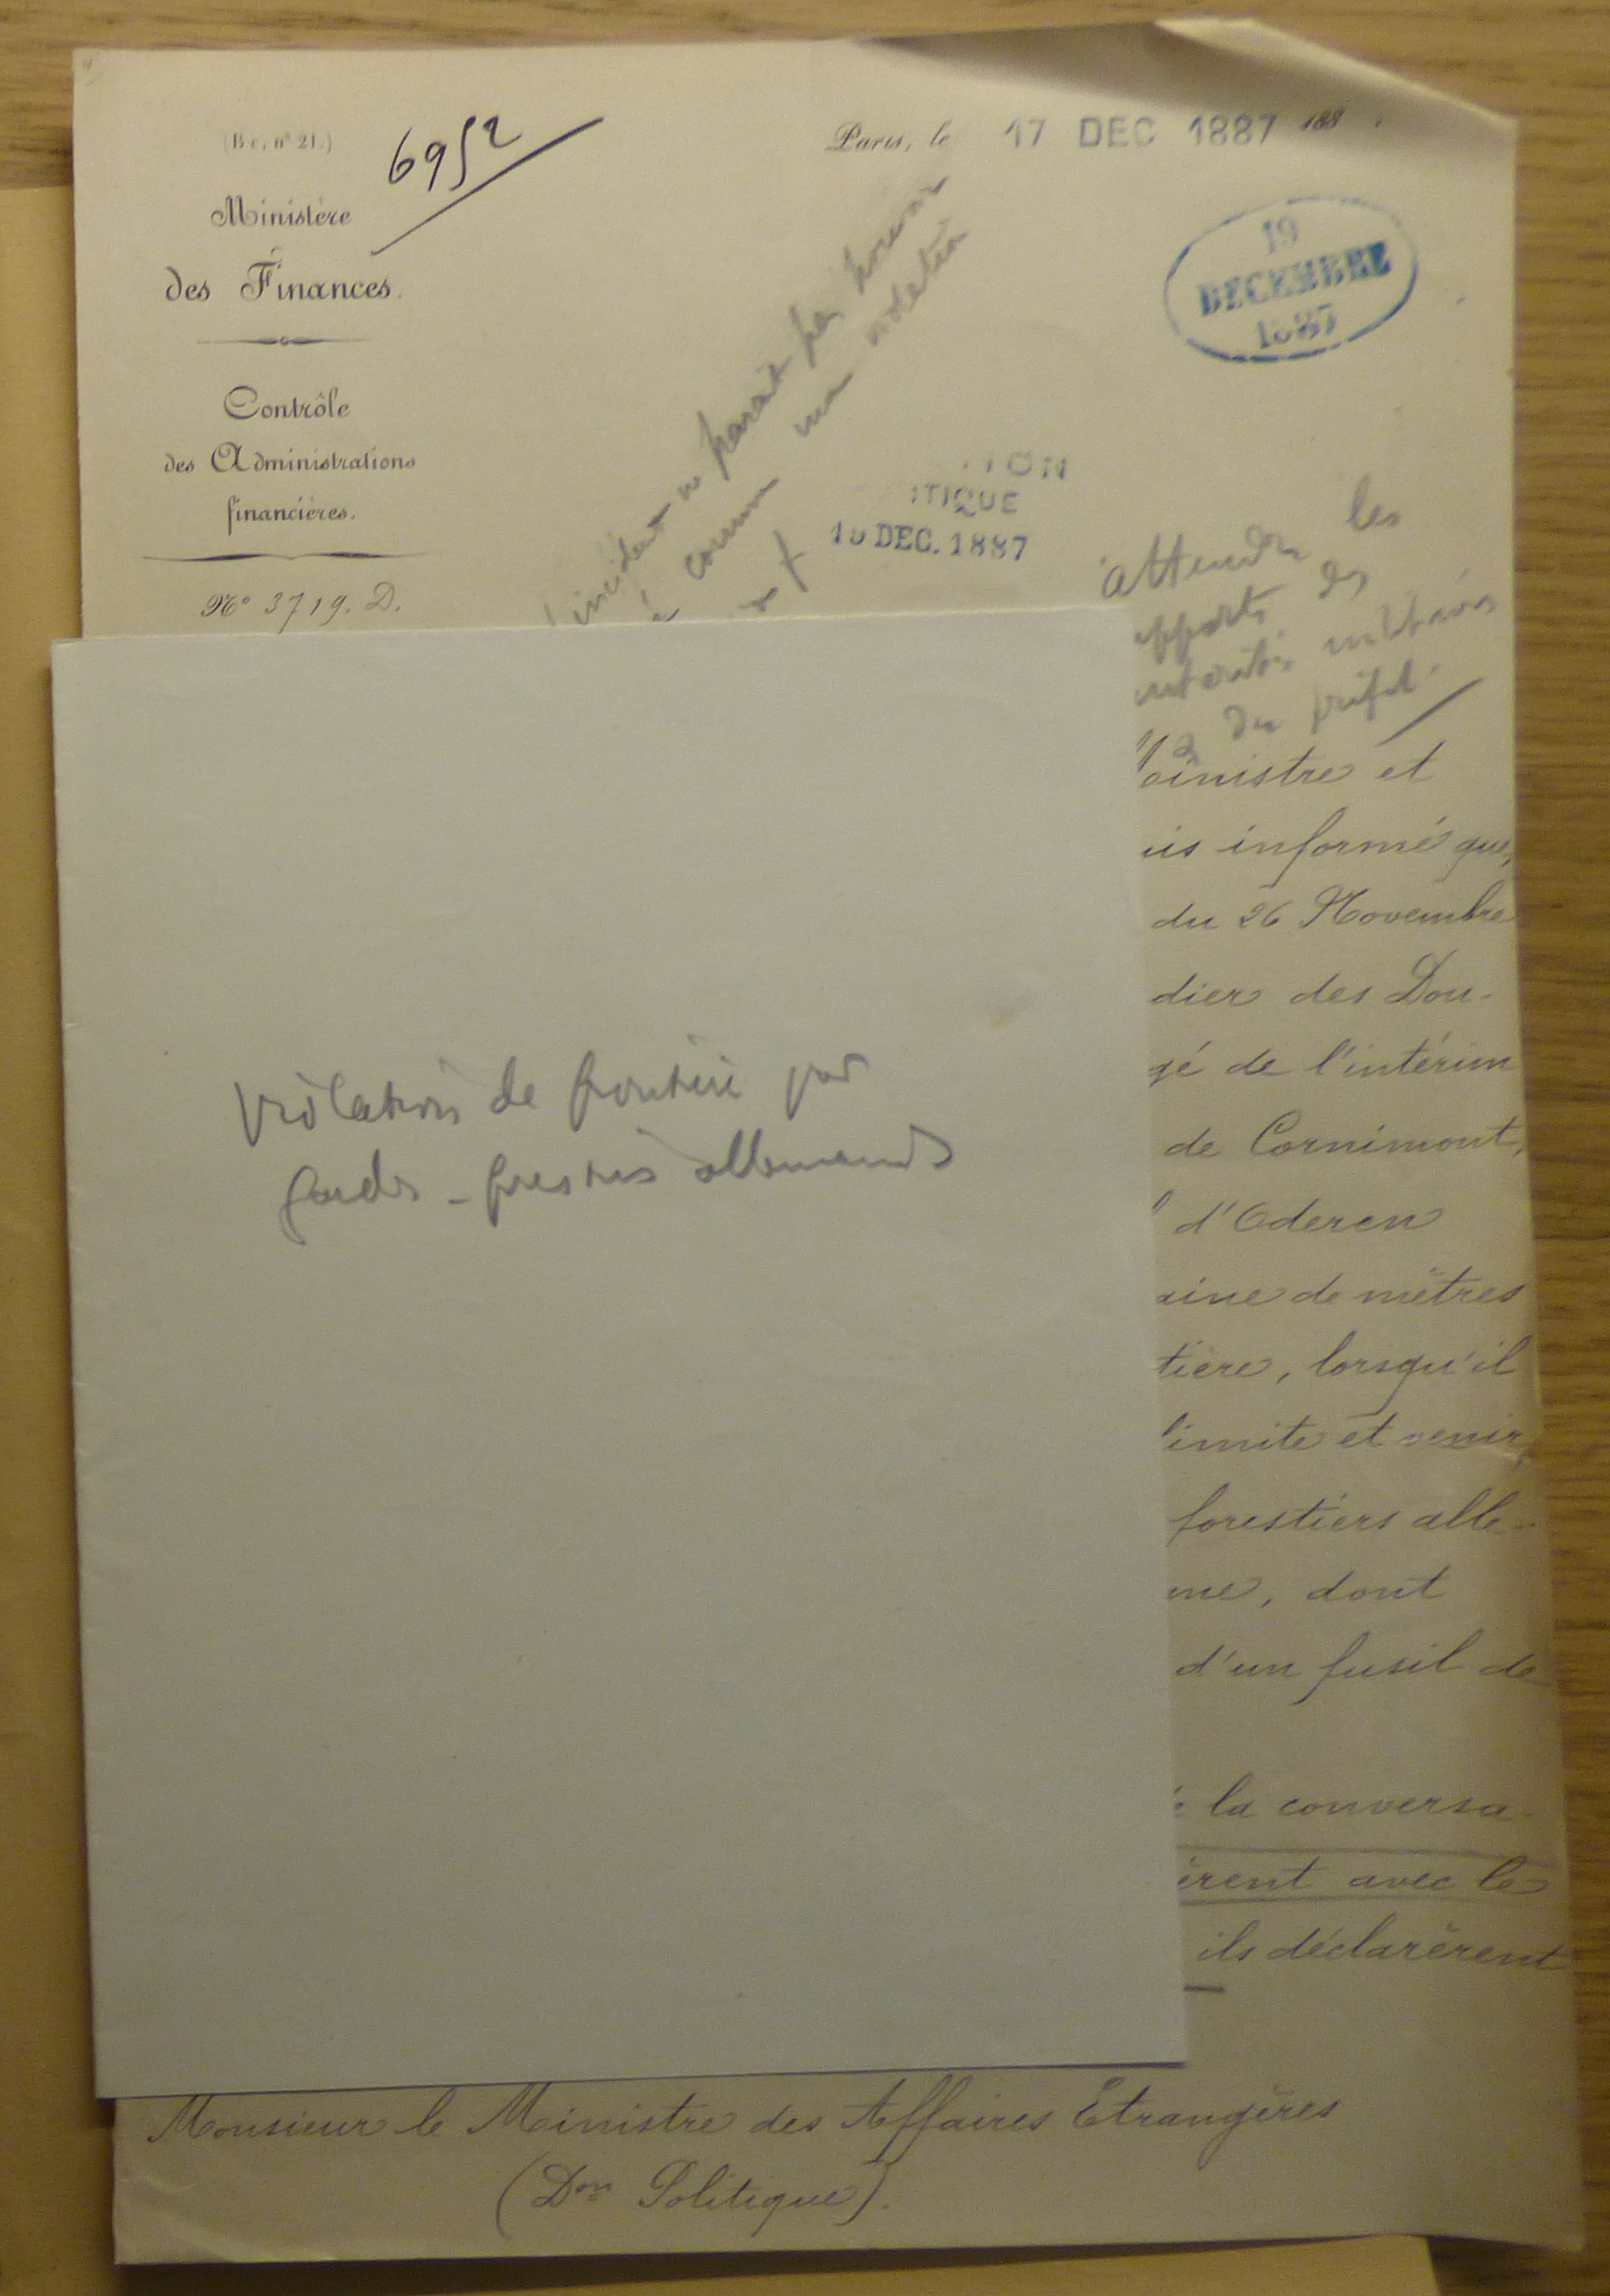 (B c. n° 21.)
6952
Ministère
des Finances.
Contrôle
des Administrations
financières.
N° 3719. D.
Paris, le 17 DEC 1887 188 .
19
DECEMBRE
1887
incident ne parait pas
comme une violation
ITIQUE
DEC. 1887
attendre les
des
militaires
du préfet.
inistre et
is informé que,
du 26 Novembre
dier des Dou-
gé de l'intérim
de Cornimont,
d'Oderen
aine de mètres
tière, lorsqu'il
imite et venir,
forestiers alle-
me, dont
d'un fusil de
la conversa-
èrent avec le
ils déclarèrent
Violation de frontière par
gardes-forestiers allemands
Monsieur le Ministre des Affaires Etrangères
(Don Politique).